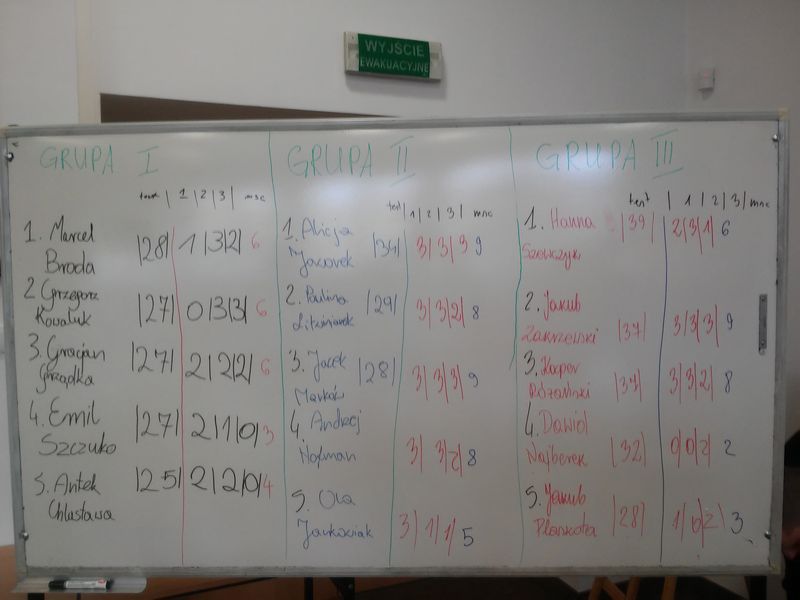 WYJŚCIE
EWAKUACYJNE
GRUPA I
test | 1 | 2 | 3 | msc
1. Marcel |28| 1 |3|2| 6
Broda
2 Grzegorz |27| 0|3|3| 6
Kowaluk
3. Gracjan |27| 2|2|2| 6
Grządka
4. Emil |27| 2|1|0| 3
Szczuko
5. Antek |25| 2|2|0| 4
Chlastawa
GRUPA II
test | 1 | 2 | 3 | msc
1. Alicja |34| 3|3|3 9
Jaworek
2. Paulina |29| 3|3|2| 8
Litwiniarek
3. Jacek |28| 3|3|3| 9
Marków
4. Andrzej
Nojman 3| 3|2| 8
5. Ola
3|1|1| 5
GRUPA III
test | 1 | 2 | 3 | msc
1. Hanna |39| 2|3|1| 6
Szewczyk
2. Jakub
Zakrzewski |37| 3|3|3| 9
3. Kacper
Różański |37| 3|3|2| 8
4. Dawid
Najberek |32| 0|0|2| 2
5. Jakub
Plaskota |28| 1|0|2| 3